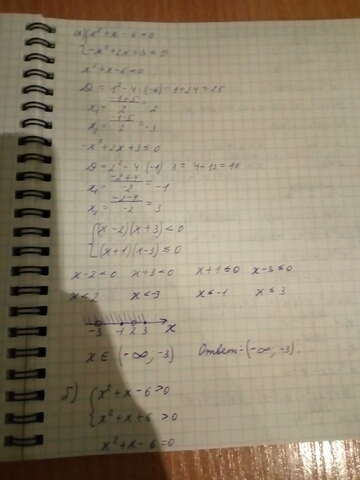 а) { x² + x - 6 < 0
{ -x² + 2x + 3 ≤ 0
x² + x - 6 = 0
D = 1² - 4·(-6) = 1 + 24 = 25
x₁ = (-1+5)/2 = 2
x₂ = (-1-5)/2 = -3
-x² + 2x + 3 ≤ 0
D = 2² - 4·(-1)·3 = 4 + 12 = 16
x₁ = (-2+4)/-2 = -1
x₂ = (-2-4)/-2 = 3
{ (x-2)(x+3) < 0
{ (x+1)(x-3) ≤ 0
x-2<0 x+3<0 x+1≤0 x-3≤0
x<2 x<-3 x≤-1 x≤3
-3 -1 2 3 x
x ∈ (-∞, -3) Ответ: (-∞, -3).
б) { x² + x - 6 > 0
{ x² + x + 6 > 0
x² + x - 6 = 0